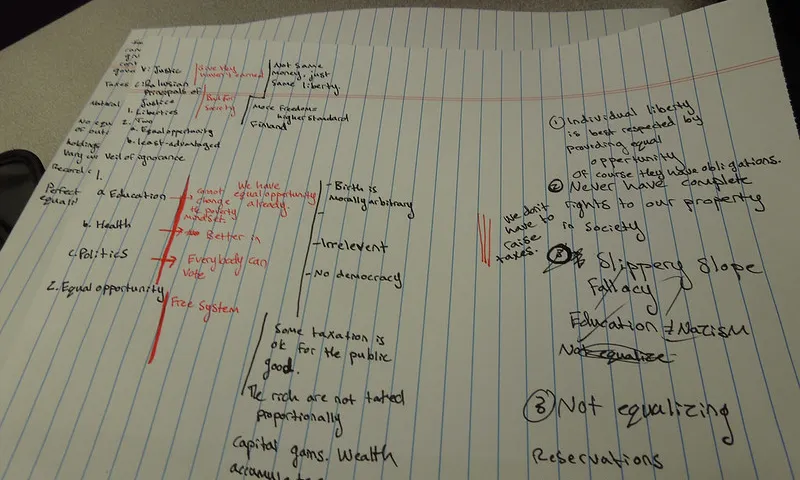 V: Justice
Taxes C: Ralwsian
principals of
Justice
Natural
1. Liberties
2. Two
a. Equal opportunity
b. least-advantaged
holdings
Veil of ignorance
Records
1.
Perfect
a. Education
b. Health
c. Politics
2. Equal opportunity
Give they
haven't earned
Bad for
society
We have
equal opportunity
already.
cannot
change
the poverty
mindset.
Better in
Everybody can
vote
Free System
Not same
money, just
same liberty.
More Freedom=
higher standard
Finland
- Birth is
morally arbitrary
-
- Irrelevent
- No democracy
Some taxation is
ok for the public
good.
The rich are not taxed
proportionally
Capital gains. Wealth
we don't
have to
raise
taxes.
① Individual liberty
is best respected by
providing equal
opportunity
Of course they have obligations.
② Never have complete
rights to our property
in society
Slippery Slope
Fallacy
Education ≠ Nazism
Not equalize
③ Not equalizing
Reservations